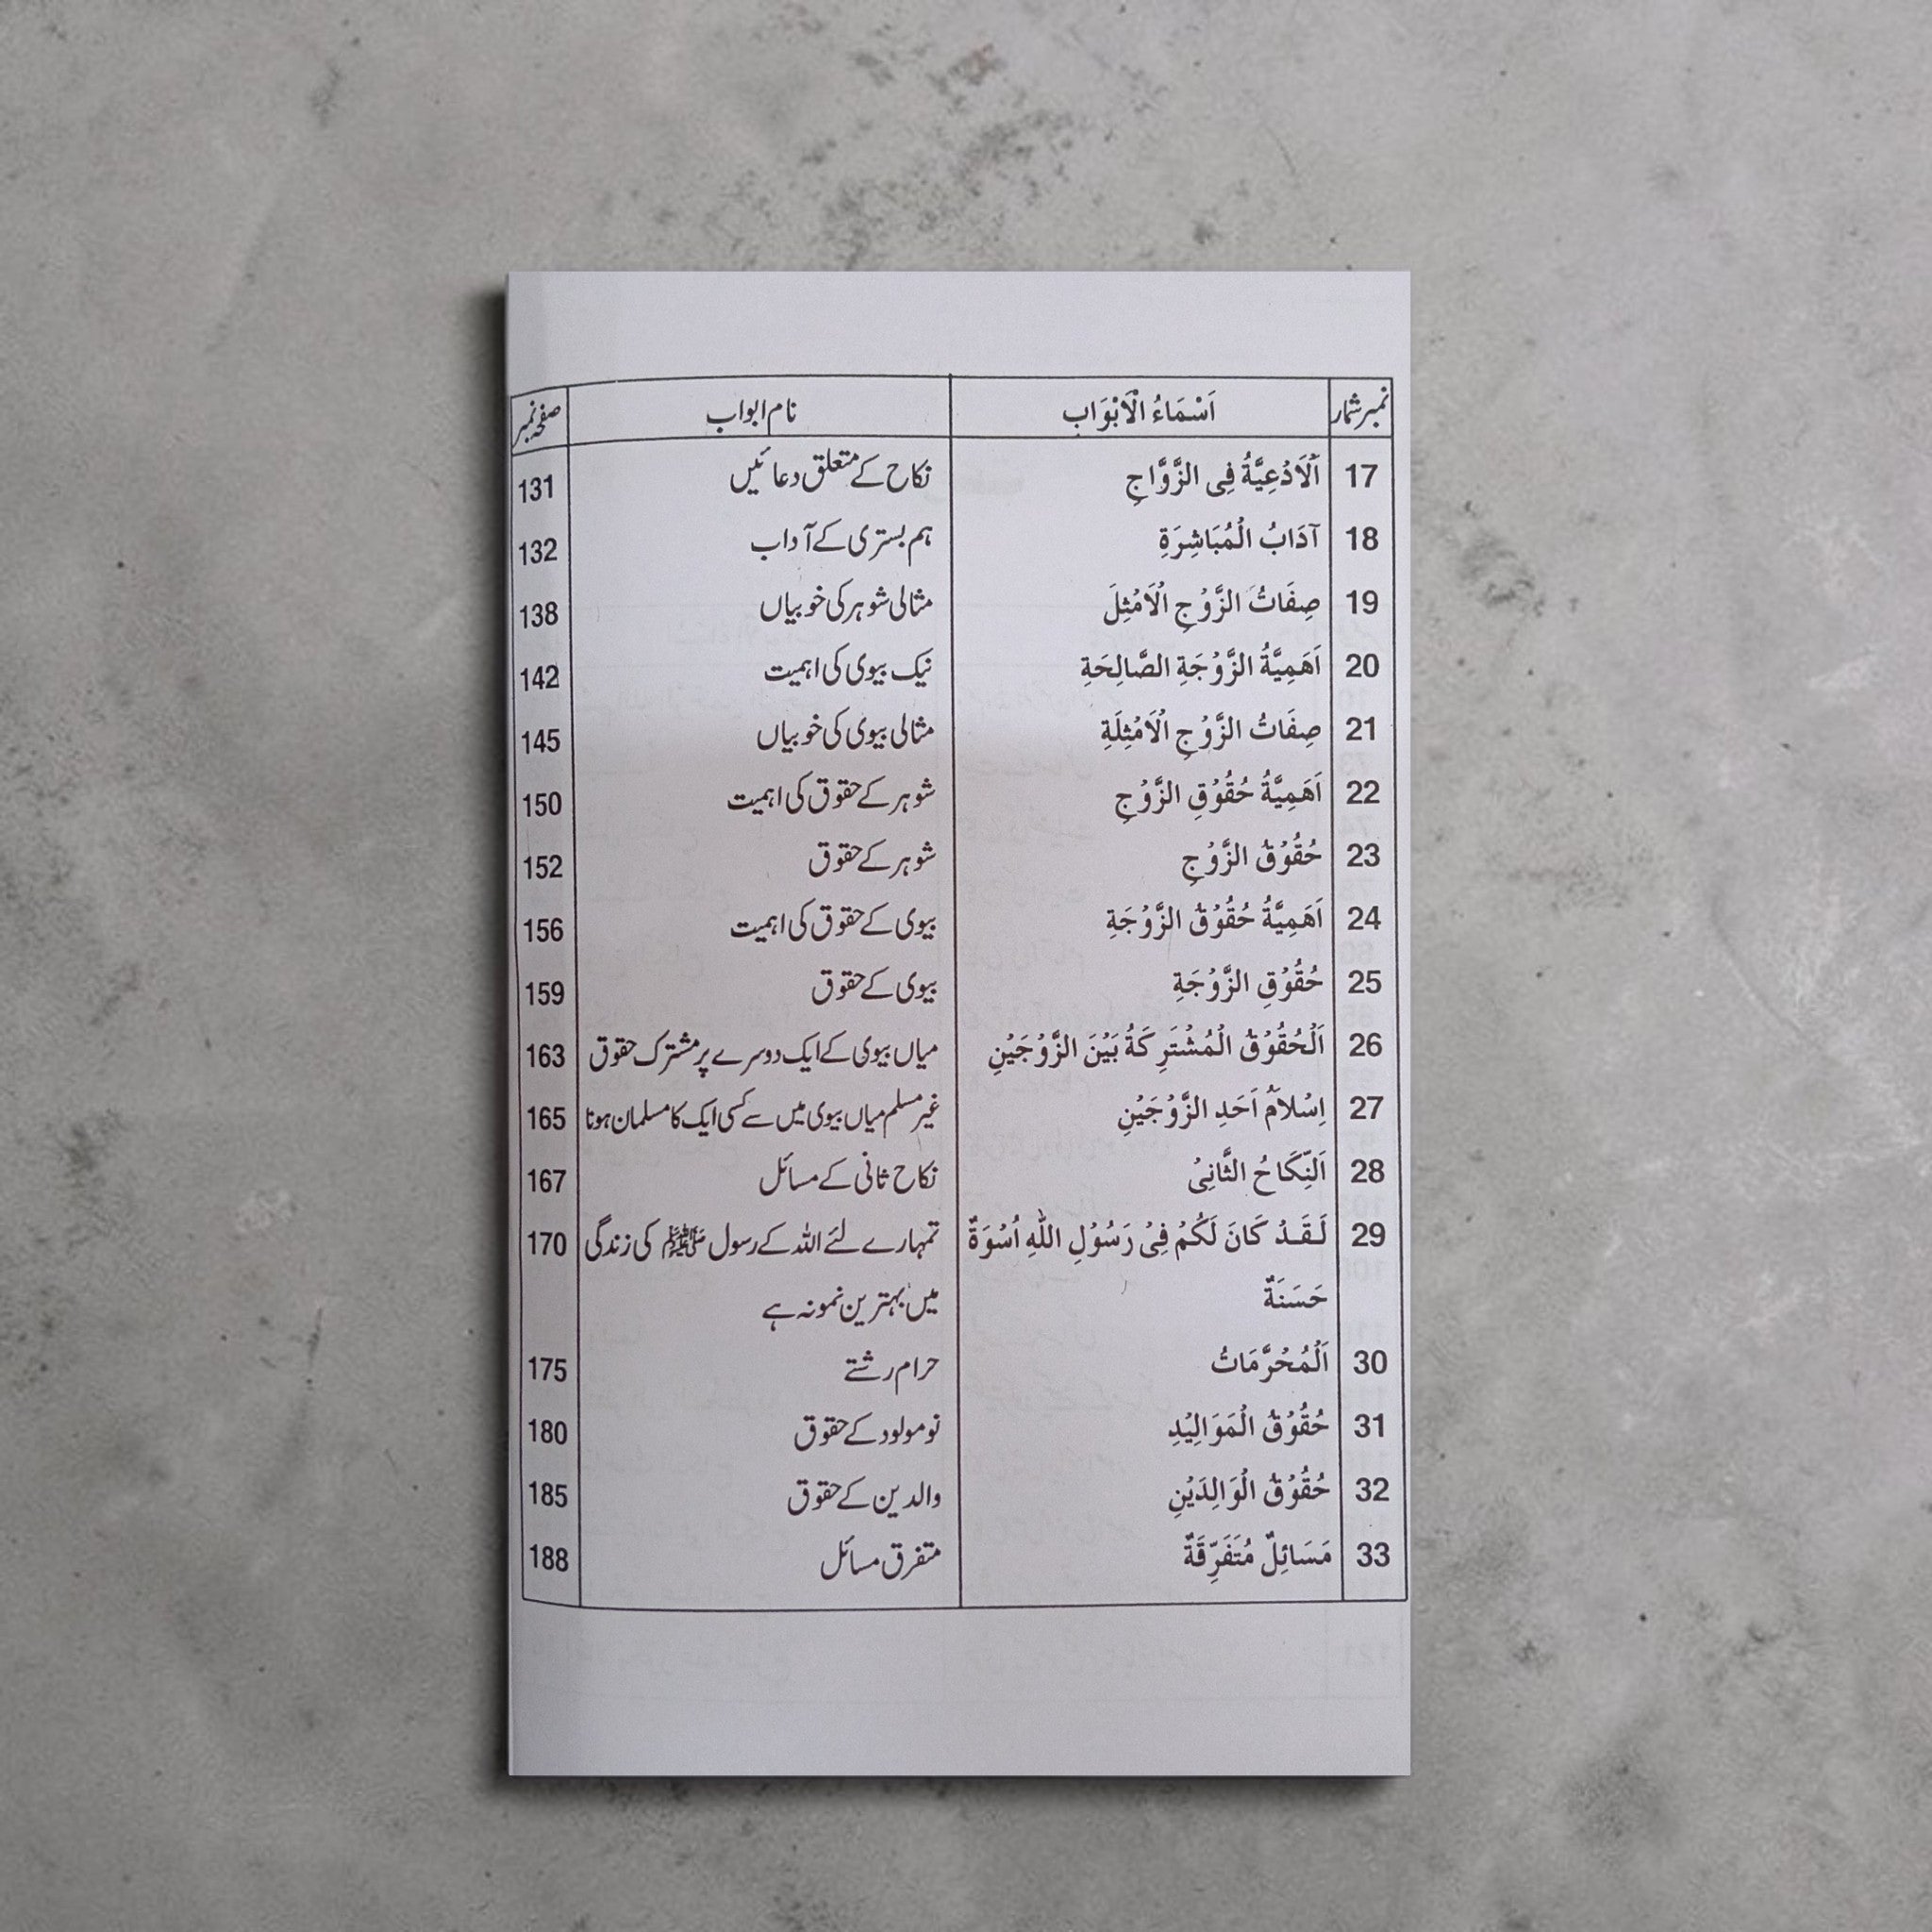 نمبر شمار اَسْمَاءُ الْاَبْوَاب نام ابواب صفحہ نمبر
17 اَلْاَدْعِيَّةُ فِى الزَّوَّاجِ نکاح کے متعلق دعائیں 131
18 آدَابُ الْمُبَاشِرَةِ ہم بستری کے آداب 132
19 صِفَاتُ الزَّوْجِ الْاَمْثِلَ مثالی شوہر کی خوبیاں 138
20 اَهَمِيَّةُ الزَّوْجَةِ الصَّالِحَةِ نیک بیوی کی اہمیت 142
21 صِفَاتُ الزَّوْجِ الْاَمْثِلَةِ مثالی بیوی کی خوبیاں 145
22 اَهَمِيَّةُ حُقُوْقِ الزَّوْجِ شوہر کے حقوق کی اہمیت 150
23 حُقُوْقُ الزَّوْجِ شوہر کے حقوق 152
24 اَهَمِيَّةُ حُقُوْقُ الزَّوْجَةِ بیوی کے حقوق کی اہمیت 156
25 حُقُوْقِ الزَّوْجَةِ بیوی کے حقوق 159
26 اَلْحُقُوْقُ الْمُشْتَرِكَةُ بَيْنَ الزَّوْجَيْنِ میاں بیوی کے ایک دوسرے پر مشترک حقوق 163
27 اِسْلَامُ اَحَدِ الزَّوْجَيْنِ غیر مسلم میاں بیوی میں سے کسی ایک کا مسلمان ہونا 165
28 اَلنِّكَاحُ الثَّانِىْ نکاح ثانی کے مسائل 167
29 لَـقَـدْ كَانَ لَكُمْ فِىْ رَسُوْلِ اللّٰهِ اُسْوَةٌ تمہارے لئے اللہ کے رسول ﷺ کی زندگی 170
حَسَنَةٌ میں بہترین نمونہ ہے
30 اَلْمُحْرَّمَاتُ حرام رشتے 175
31 حُقُوْقُ الْمَوَالِيْدِ نو مولود کے حقوق 180
32 حُقُوْقُ الْوَالِدَيْنِ والدین کے حقوق 185
33 مَسَائِلٌ مُتَفَرِّقَةٌ متفرق مسائل 188